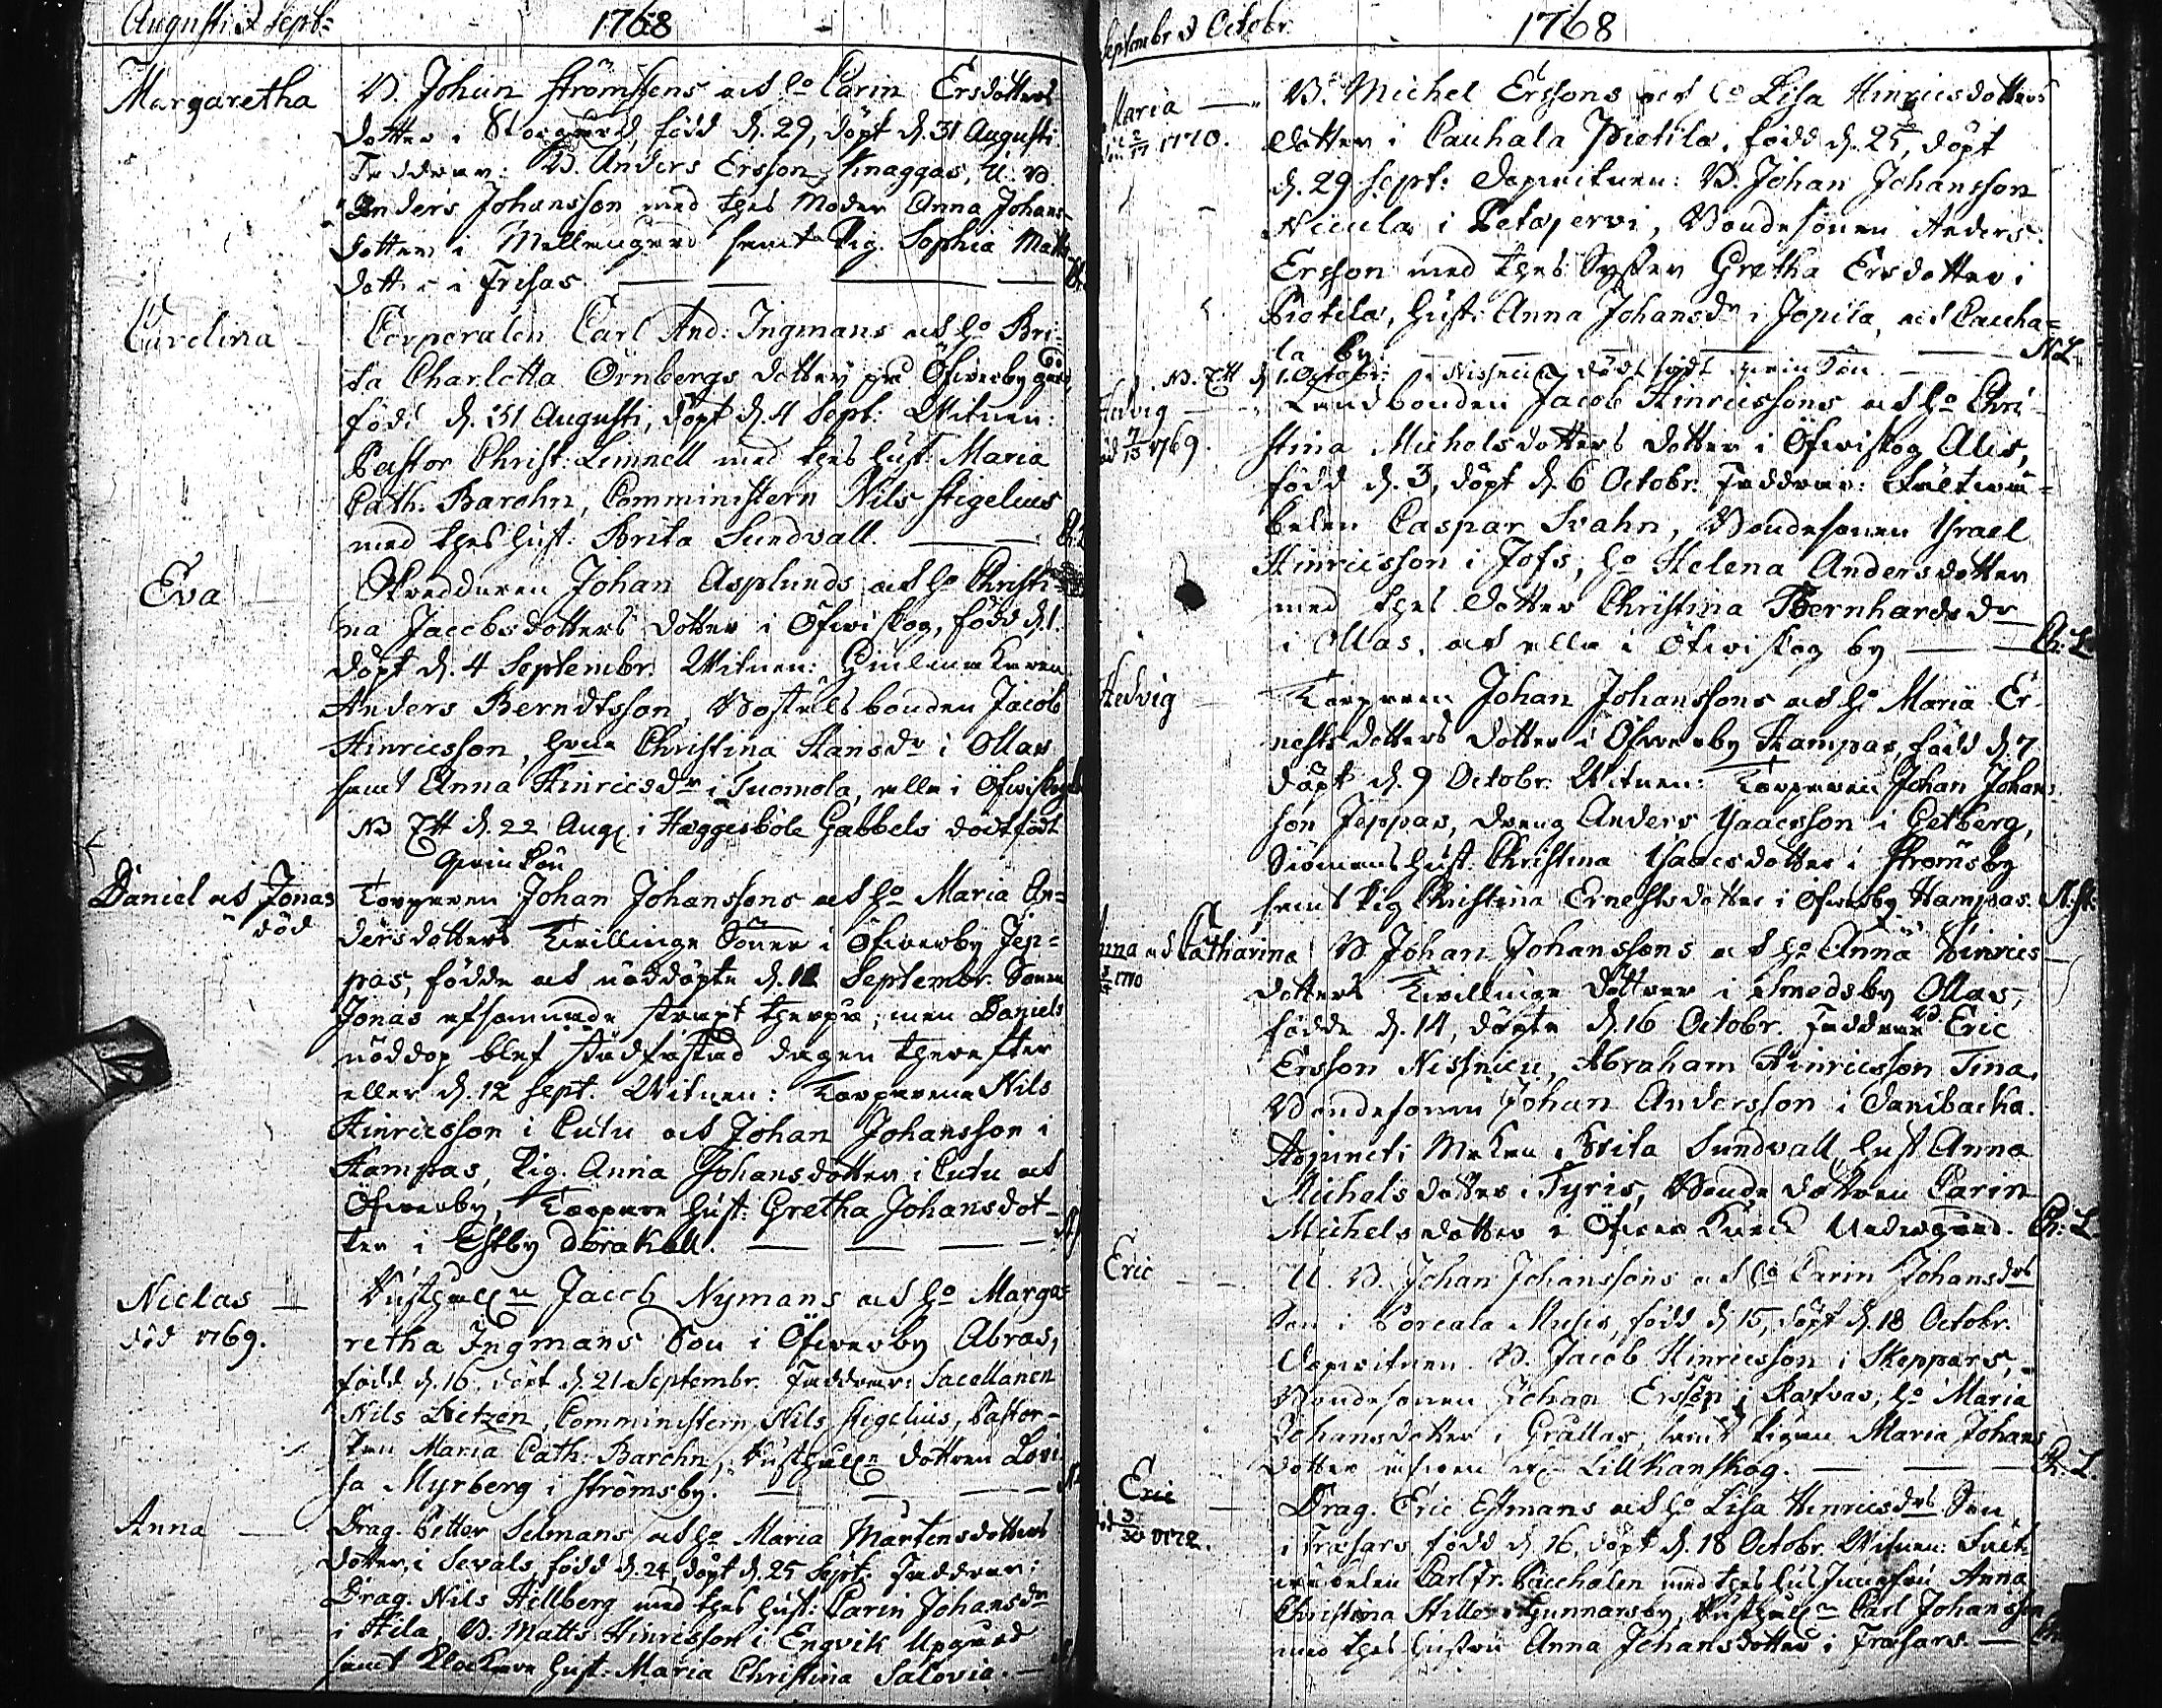 Augusti & Sept:
1768
Margaretha
B. Johan Strömstens och h:o Carin Ersdotters
dotter i Storgård, född d. 29, döpt d. 31 Augusti
Faddrar: B. Anders Ersson Knaggas, U. B.
Anders Johansson med thes Moder Anna Johans-
dotter i Mellangård samt Pig. Sophia Matts
dotter i Fresas
Carolina
Corporalen Carl And: Ingmans och h:o Bri-
ta Charlotta Örnbergs dotter på Öfwerby gård,
född d. 31 Augusti, döpt d. 4 Sept: Witnen:
Pastor Christ: Limnell med thes hust: Maria
Cath: Barohn, Comministern Nils Stigelius
med thes hust: Brita Sundvall.
Eva
Skreddaren Johan Asplunds och h:o Christi-
na Jacobsdotters dotter i Öfwiskog, född d. 1.
döpt d. 4 Septembr. Witnen:
Anders Berndtsson, Bostelsbonden Jacob
Hinricsson, Christina Hansdr i Ollas
samt Anna Hinricsdr i Tuomola, alla i Öfwiskog
NB Ett d. 22 Aug i Häggesböle Gabbels dödfödt
gåssebarn
Daniel och Jonas
död
Torparen Johan Johanssons och h:o Maria An-
dersdotters Twillinge Söner i Öfwerby Jep-
pas, födde och nöddöpte d. 11 Septembr. Sonen
Jonas afsomnade strax therpå; men Daniels
nöddop blef stadfästad dagen therefter
eller d. 12 Sept. Witnen: Torparena Nils
Hinricsson i Cutu och Johan Johansson i
Hampas, Pig. Anna Johansdotter i Cutu och
Öfwerby, Torpare hust: Gretha Johansdot-
ter i Estby Dörakall.
Niclas
död 1769.
Jacob Nymans och h:o Marga-
retha Ingmans Son i Öfwerby Abras,
född d. 16, döpt d. 21 Septembr. Faddrar: Sacellanen
Nils Lietzén, Comministern Nils Stigelius, Pastor-
skan Maria Cath: Barohn, dottren Lovi-
sa Myrberg i Strömsby.
Anna
Drag. Petter Selmans och h:o Maria Mårtensdotters
dotter i Sevals, född d. 24, döpt d. 25 Sept: Faddrar:
Drag. Nils Hillberg med thes hust: Carin Johansdr
i Hila, B. Matts Hinricsson i Engvik Upgård
samt Klockare hust: Maria Christina Salovia.
Septembr & Octobr.
1768
Maria
1770.
B. Michel Erssons och h:o Lisa Hinricsdotters
dotter i Cauhala Pietilä, född d. 25, döpt
d. 29 Sept: Dopwitnen: B. Johan Johansson
Niculas i Petäjervi, Bondesonen Anders
Ersson med thes Syster Gretha Ersdotter i
Pietilä, hust: Anna Johansdr i Jopila, och Cauha-
la by. N.L.
NB. Ett d. 1. Octobr: i Nissnicu dödfödt
Hedvig
död 7/13 1769.
Landbonden Jacob Hinricssons och h:o Chri-
stina Michelsdotters dotter i Öfwiskog Alis,
född d. 3, döpt d. 6 Octobr. Faddrar: Fältwä-
belen Caspar Svahn, Bondesonen Israel
Hinricsson i Jofs, h:o Helena Andersdotter
med thes dotter Christina Bernhardsdr
i Ollas, och alla i Öfwiskog by Ch: L.
Hedvig
Torparen Johan Johanssons och h:o Maria Er-
nestsdotters dotter i Öfwerby Hampas, född d. 7
döpt d. 9 Octobr. Witnen: Torparen Johan Johans-
son Jeppas, dreng Anders Isacsson i Getberg,
Siömans hust: Christina Isaacsdotter i Strömsby
samt Pig Christina Ernestsdotter i Öfwerby Hampas. N. St:
Anna och Catharina
1770
B Johan Johanssons och h:o Anna Hinrics-
dotters Twillinge döttrar i Smedsby Ollas,
födde d. 14, döpte d. 16 Octobr. Faddrar B Eric
Ersson Nissnicu, Abraham Hinricsson Tinas
Bondesonen Johan Andersson i Danibacka.
Adjuncti Makan Brita Sundvall, hust Anna
Michelsdotter i Tyris, Bonde dottren Carin
Michelsdotter i Öfwer Kurck Nedergård. Ch: L.
Eric
U. B. Johan Johanssons och h:o Carin Johansdrs
Son i Porcala Musis, född d 15, döpt d. 18 Octobr.
Dopwitnen. B. Jacob Hinricsson i Skeppars,
Bondesonen Johan Ersson i Rafvas, h:o Maria
Johansdotter i Grållas, samt Pigan Maria Johans
dotter Lillkanskog. Ch. L.
Eric
död 3/30 1772.
Drag. Eric Estmans och h:o Lisa Hinricsdrs Son
i Træsars född d. 16, döpt d. 18 Octobr. Witnen: Fält-
wäbelen Carl Fr. med thes Jungfru Anna
Christina Hille i Gunnarsby, Carl Johansson
med thes hustru Anna Johansdotter i Træsars.